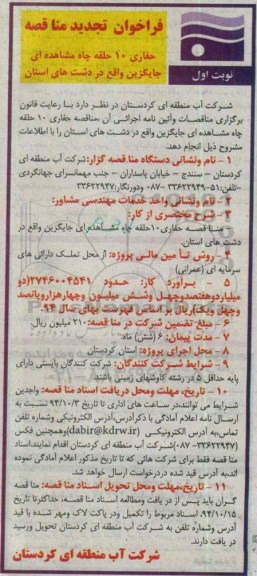 فراخوان تجدید مناقصه
حفاری ۱۰ حلقه چاه مشاهده ای
جایگزین واقع در دشت های استان
نوبت اول
شرکت آب منطقه ای کردستان در نظر دارد با رعایت قانون
برگزاری مناقصات وآئین نامه اجرائی آن ،مناقصه حفاری ۱۰ حلقه
چاه مشاهده ای جایگزین واقع در دشت های استان را با اطلاعات
مشروح ذیل انجام دهد.
۱ - نام ونشانی دستگاه مناقصه گزار: شرکت آب منطقه ای
کردستان - سنندج - خیابان پاسداران - جنب مهمانسرای جهانگردی
-تلفن:۵۱-۳۳۶۲۲۹۴۹-۰۸۷ ودورنگار:۳۳۶۲۲۹۴۷
۲- نام ونشانی واحد خدمات مهندسی مشاور:
۳- شرح مختصری از کار:
مناقصه حفاری۱۰حلقه چاه مشاهده ای جایگزین واقع در
دشت های استان.
۴- روش تأمین مالی پروژه: از محل تملک دارائی های
سرمایه ای (عمرانی)
۵- برآورد کار: حدود ۲۷۴۶۰۰۴۵۴۱(دو
میلیاردوهفتصدوچهل وشش میلیون وچهارهزاروپانصد
وچهل ویک)ریال براساس فهرست بهای سال ۹۴
۶- مبلغ تضمین شرکت در مناقصه: ۲۱۰ میلیون ریال.
۷- مدت پیمان: ۶ (شش) ماه.
۸- محل اجرای پروژه: استان کردستان
۹- شرایط شرکت کنندگان: شرکت کنندگان بایستی دارای
پایه حداقل ۵ در رشته کاوشهای زمینی باشند.
۱۰- تاریخ، مهلت ومحل دریافت اسناد مناقصه: واجدین
شرایط می توانند،در ساعت های اداری تا تاریخ ۹۴/۱۰/۳ نسبت به
ارسال نامه اعلام آمادگی با ذکرآدرس،آدرس الکترونیکی وشماره تلفن
تماس،به آدرس الکترونیکی (dabir@kdrw.ir)وهمچنین فکس
(۳۳۶۲۲۹۴۷-۰۸۷)شرکت آب منطقه ای کردستان اقدام نمایند.اسناد
مناقصه فقط برای شرکت هائی که تا تاریخ مذکور اعلام آمادگی نموده
اند،به آدرس قید شده در درخواست ارسال خواهد شد.
۱۱- تاریخ،مهلت ومحل تحویل اسناد مناقصه: مناقصه
گران باید پس از دریافت ومطالعه اسناد مناقصه، حداکثرتا تاریخ
۹۴/۱۰/۱۵، اسناد مربوط را تکمیل ودر پاکت لاک ومهر شده با قید
آدرس وشماره تلفن به شرکت آب منطقه ای کردستان تحویل ورسید
دریافت دارند.
شرکت آب منطقه ای کردستان